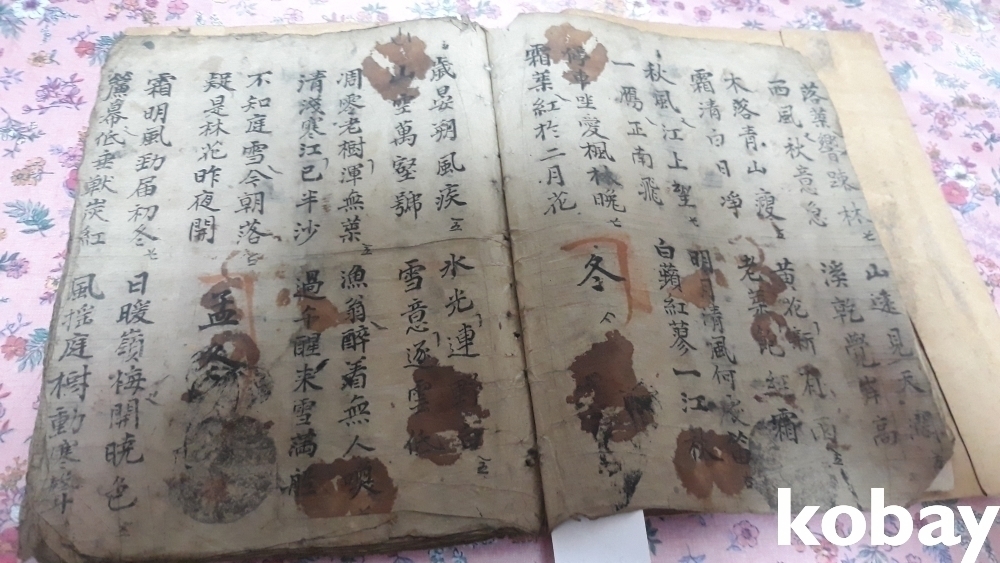 落葉響踈林 山遠見天闊
西風秋意急 溪乾覺岸高
木落青山瘦 黃花新有雨
霜清白日淨 老葉已經霜
秋風江上望 明月清風何處笛
一鴈正南飛 白蘋紅蓼一江秋
停車坐愛楓林晚 冬
霜葉紅於二月花
歲晏朔風疾 氷光連野白
山空萬壑號 雪意逐雲
凋零老樹渾無葉 漁翁醉着無人喚
清淺寒江已半沙 過午醒來雪滿舡
不知庭雪今朝落 孟冬
疑是林花昨夜開
霜明風勁届初冬 日暖嶺梅開曉色
簾幕低垂獸炭紅 風搖庭樹動寒
kobay